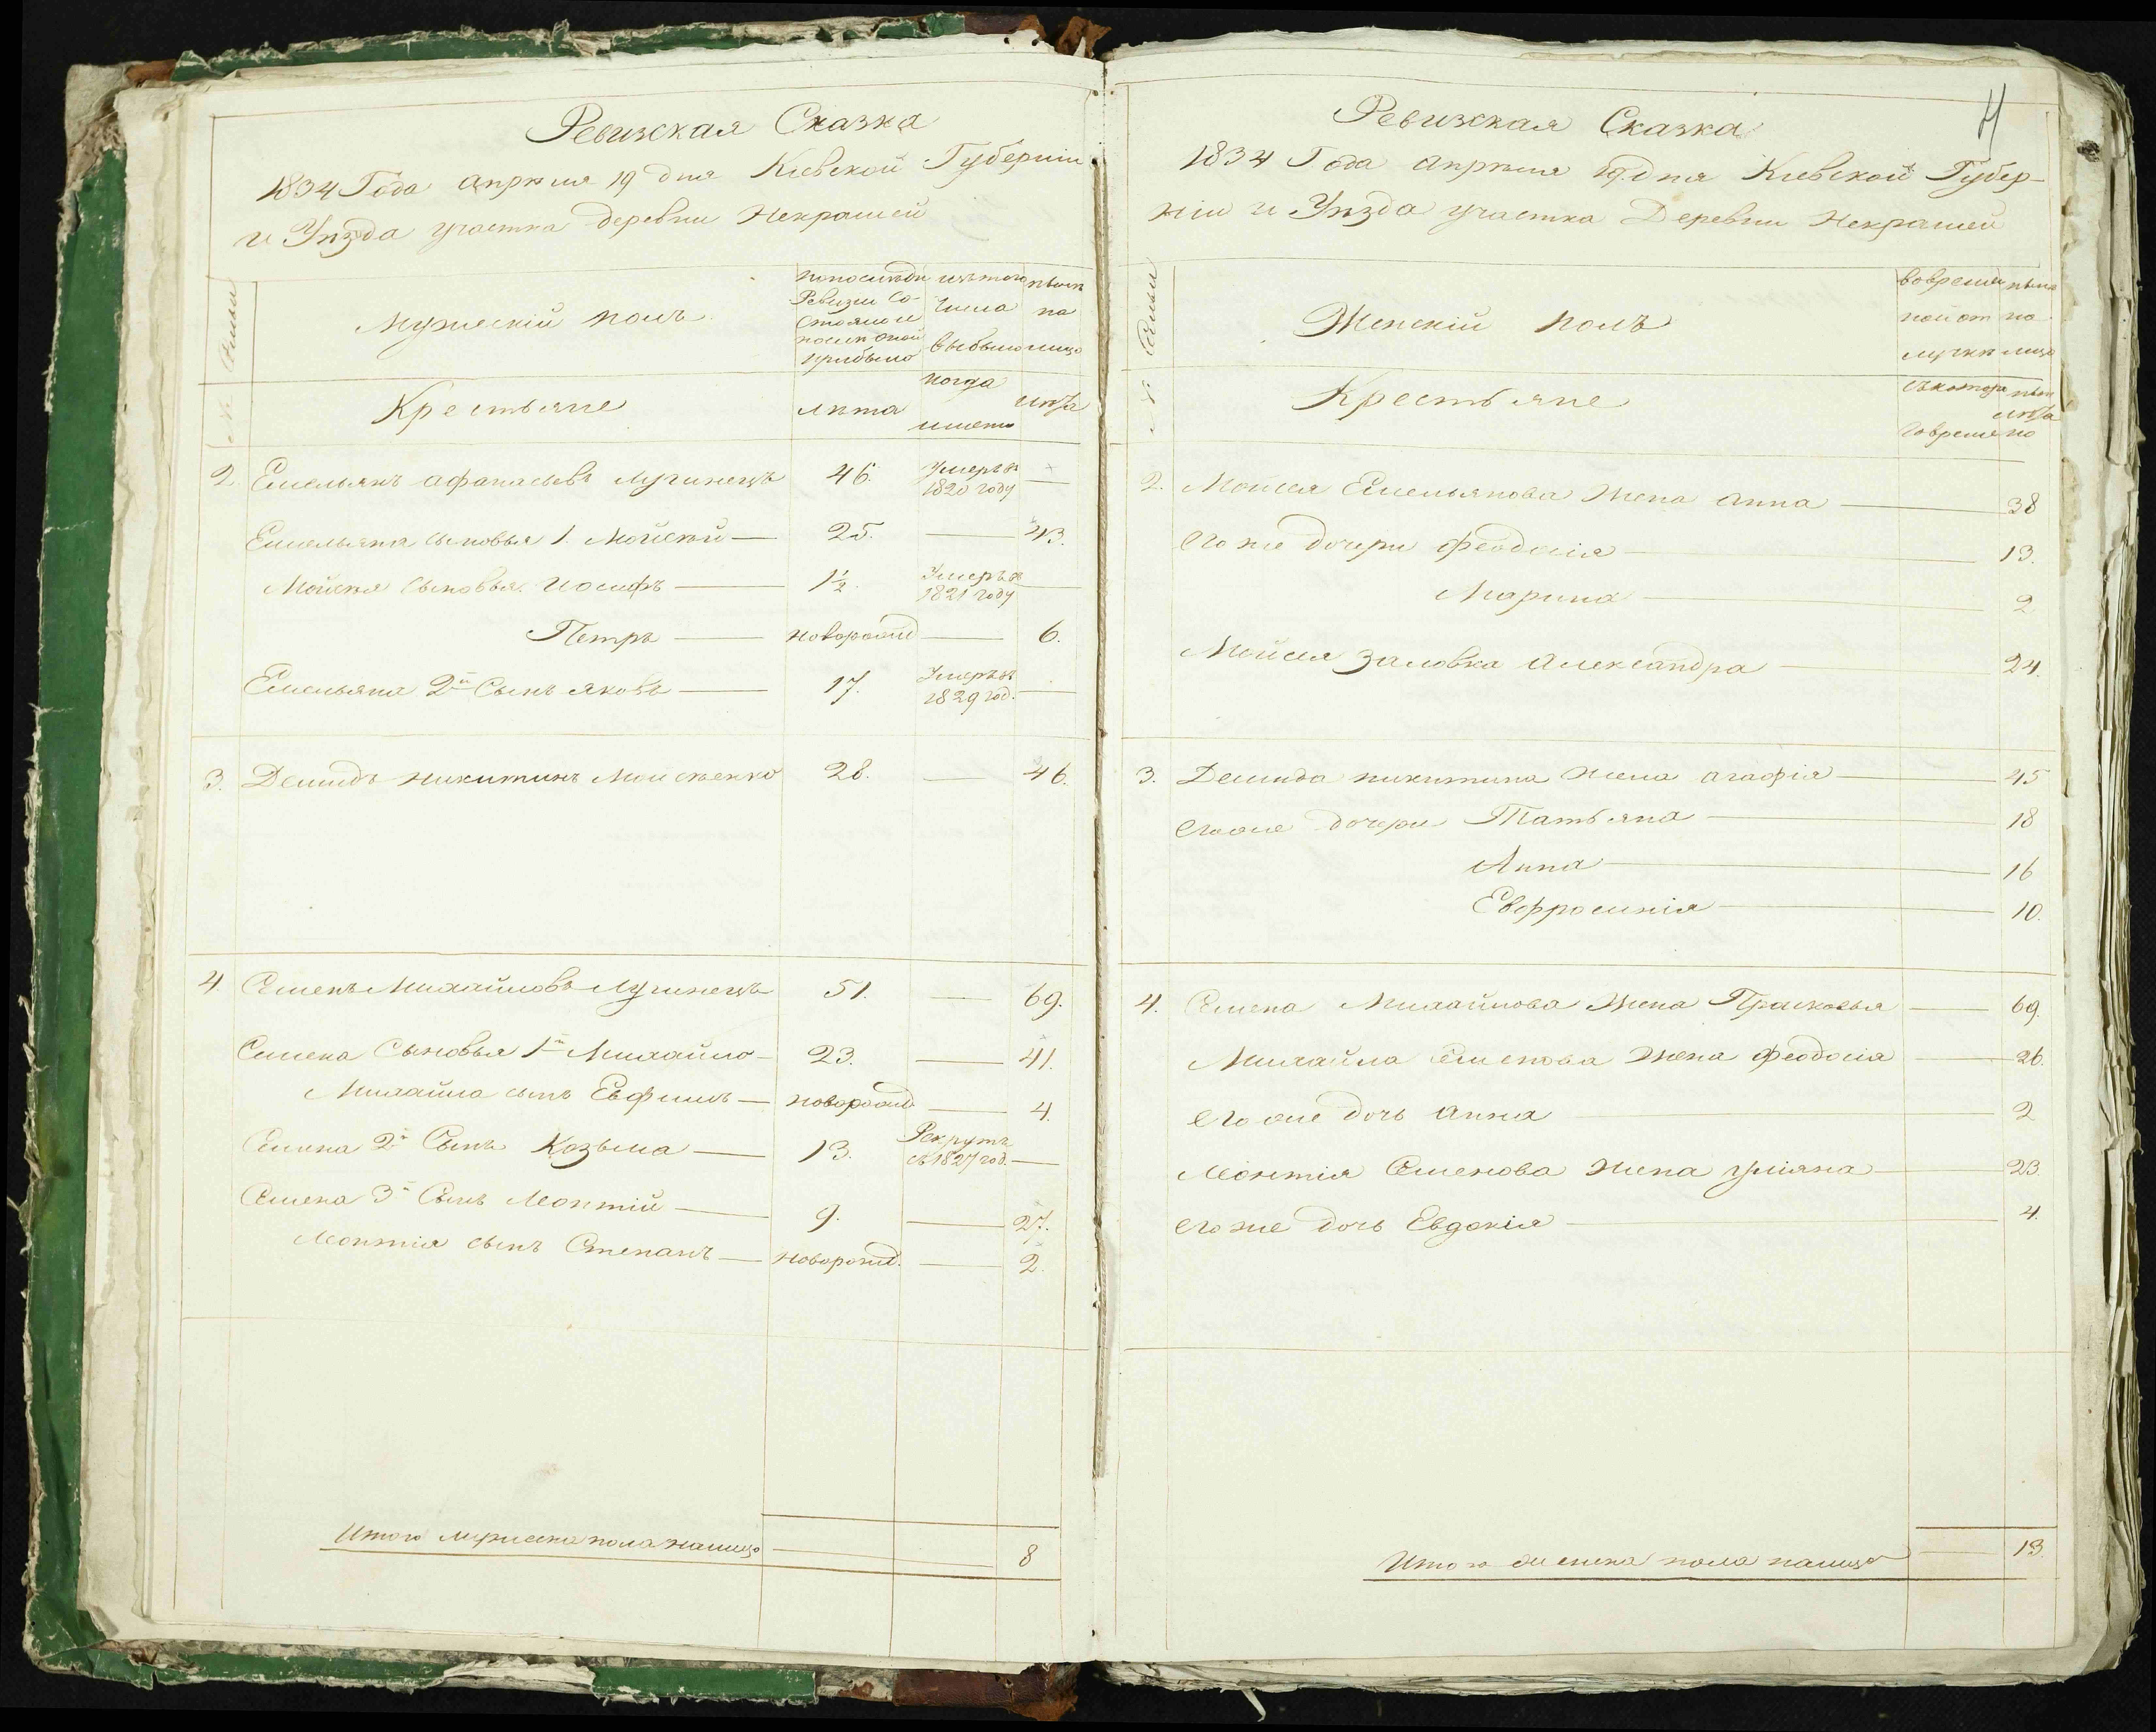 Ревизская Сказка
1834 Года апрѣля 19 дня Кіевской Губерніи
и Уѣзда участка деревни Некрашей
№ Семьи
Мужескій полъ
по послѣдн
Ревизіи Со-
стояло и
послѣ оной
прибыло
изъ того
числа
выбыло
нынѣ
на
лицо
Крестьяне
лѣта
когда
имено
лѣта
2 Емельянъ афанасьевъ Лугинецъ 46. Умеръ въ 1820 году —
Емельяна сыновья 1. Мойсѣй — 25. — 43.
Мойсѣя сыновья. Иосифъ — 1½. Умеръ в 1821 году —
Петръ — новорожд — 6.
Емельяна 2й Сынъ яковъ — 17. Умеръ въ 1829 год. —
3. Демидъ Никитинъ Моисѣенко 28. — 46.
4 Семенъ Михайловъ Лугинецъ 51. — 69.
Семена Сыновья 1й Михайло — 23. — 41.
Михайла сынъ Евфимъ — новорожд — 4.
Семена 2й Сынъ Козьма — 13. Рекрутъ съ 1827 год. —
Семена 3й Сынъ Леонтій — 9. — 27.
Леонтія сынъ Степанъ — новорожд. — 2.
Итого мужеска пола налицо — 8
4
Ревизская Сказка
1834 Года апрѣля 19. дня Кіевской Губер-
ніи и Уѣзда участка Деревни Некрашей
№ Семьи
Женскій полъ
вовремян
ной от
лучкѣ
нынѣ
на
лицо
Крестьяне
съ котора
го времено
лѣта
2. Моисея Емельянова Жена анна — 38
его же дочери феодосія — 13.
Марина — 2
Мойсея Заловка Александра — 24.
3. Демида никитина жена агафія — 45
его же дочери Татьяна — 18
Анна — 16
Евфросинія — 10.
4. Семена Михайлова Жена Прасковья — 69.
Михайла Семенова Жена феодосія — 26.
его же дочь анна — 2
Леонтія Семенова жена уліяна — 23.
его же дочь Евдокія — 4.
Итого женска пола налицо — 13.